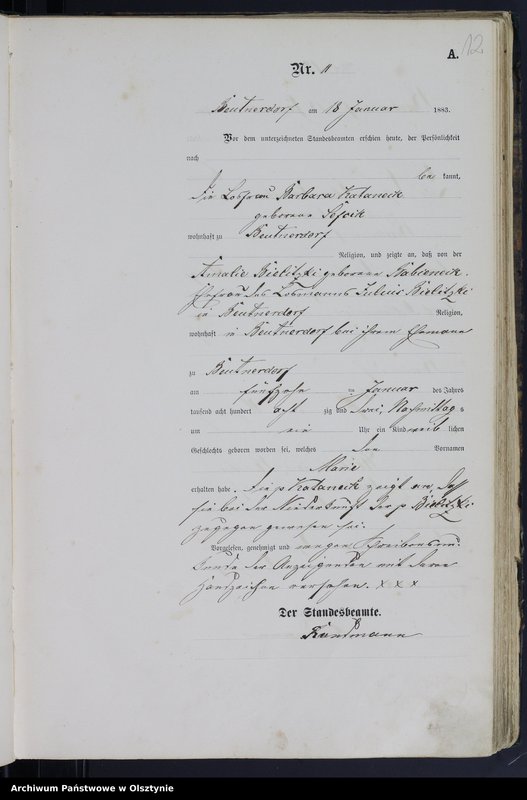 A. 12
Nr. 11
Beutnerdorf am 18 Januar 1883.
Vor dem unterzeichneten Standesbeamten erschien heute, der Persönlichkeit
nach
be kannt,
die Losfrau Barbara Kataneck
geborene
wohnhaft zu Beutnerdorf
Religion, und zeigte an, daß von der
Amalie Bielitzki geborene
Ehefrau des Losmanns Julius Bielitzki
in Beutnerdorf Religion,
wohnhaft in Beutnerdorf bei ihrem Ehemann
zu Beutnerdorf
am fünfzehn ten Januar des Jahres
tausend acht hundert acht zig und drei, Nachmittag s
um Uhr ein Kind weib lichen
Geschlechts geboren worden sei, welches den Vornamen
Marie
erhalten habe. Die p Kataneck zeigt an, daß
sie bei der Niederkunft der p Bielitzki
zugegen gewesen sei.
Vorgelesen, genehmigt und wegen Schreibensun-
kunde der Anzeigenden mit deren
Handzeichen versehen. x x x
Der Standesbeamte.
Archiwum Państwowe w Olsztynie